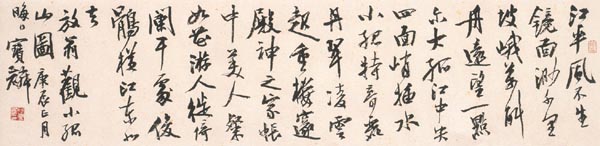 江平風不生
鏡面渺千里
峨萬斛
舟遠望一點
尔大孤江中央
四面峭插水
小孤特奇麗
丹翠凌雲
起重樓邃
殿神之家帳
中美人粲
如花游人徙倚
闌干處俊
鶻橫江東北
去
放翁觀小孤
山圖庚辰正月
晦日寶